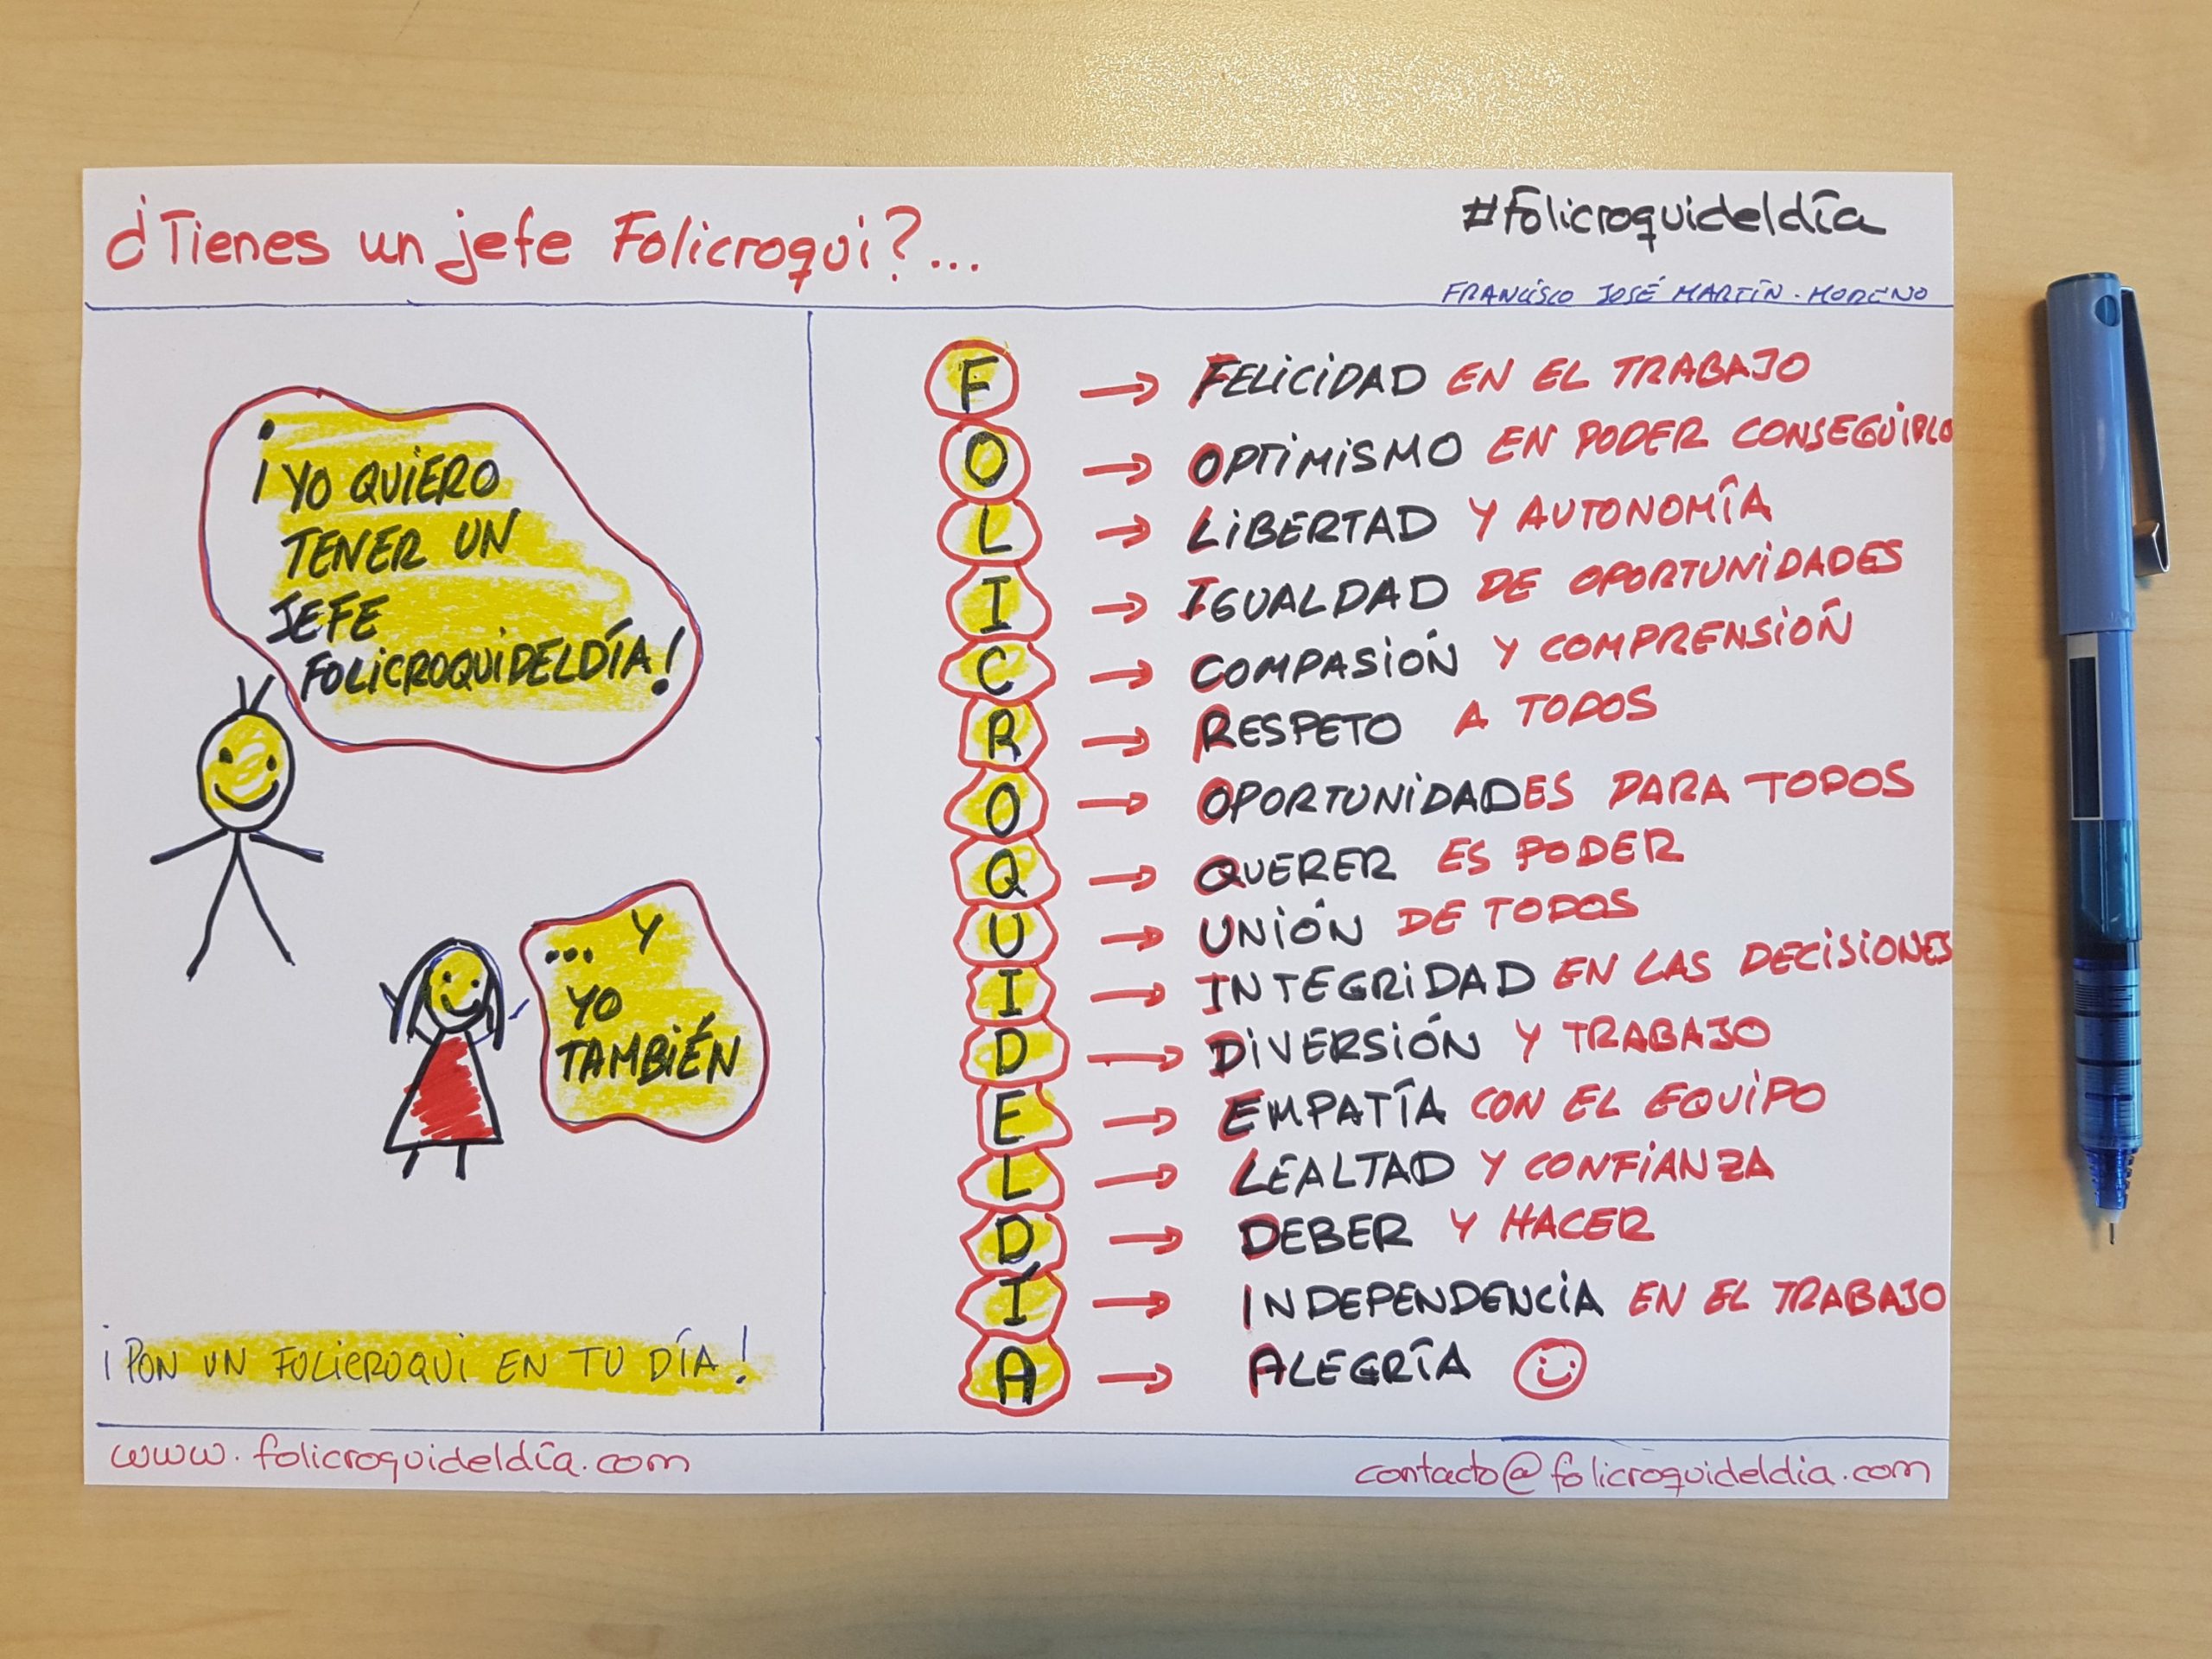 ¿Tienes un jefe Folicroqui?...
#folicroquideldía
FRANCISCO JOSÉ MARTÍN-MORENO
¡YO QUIERO
TENER UN
JEFE
FOLICROQUIDELDÍA!
... Y
YO
TAMBIÉN
¡PON UN FOLICROQUI EN TU DÍA!
F → FELICIDAD EN EL TRABAJO
O → OPTIMISMO EN PODER CONSEGUIRLO
L → LIBERTAD Y AUTONOMÍA
I → IGUALDAD DE OPORTUNIDADES
C → COMPASIÓN Y COMPRENSIÓN
R → RESPETO A TODOS
O → OPORTUNIDADES PARA TODOS
Q → QUERER ES PODER
U → UNIÓN DE TODOS
I → INTEGRIDAD EN LAS DECISIONES
D → DIVERSIÓN Y TRABAJO
E → EMPATÍA CON EL EQUIPO
L → LEALTAD Y CONFIANZA
D → DEBER Y HACER
Í → INDEPENDENCIA EN EL TRABAJO
A → ALEGRÍA
www.folicroquideldía.com
contacto@folicroquideldia.com